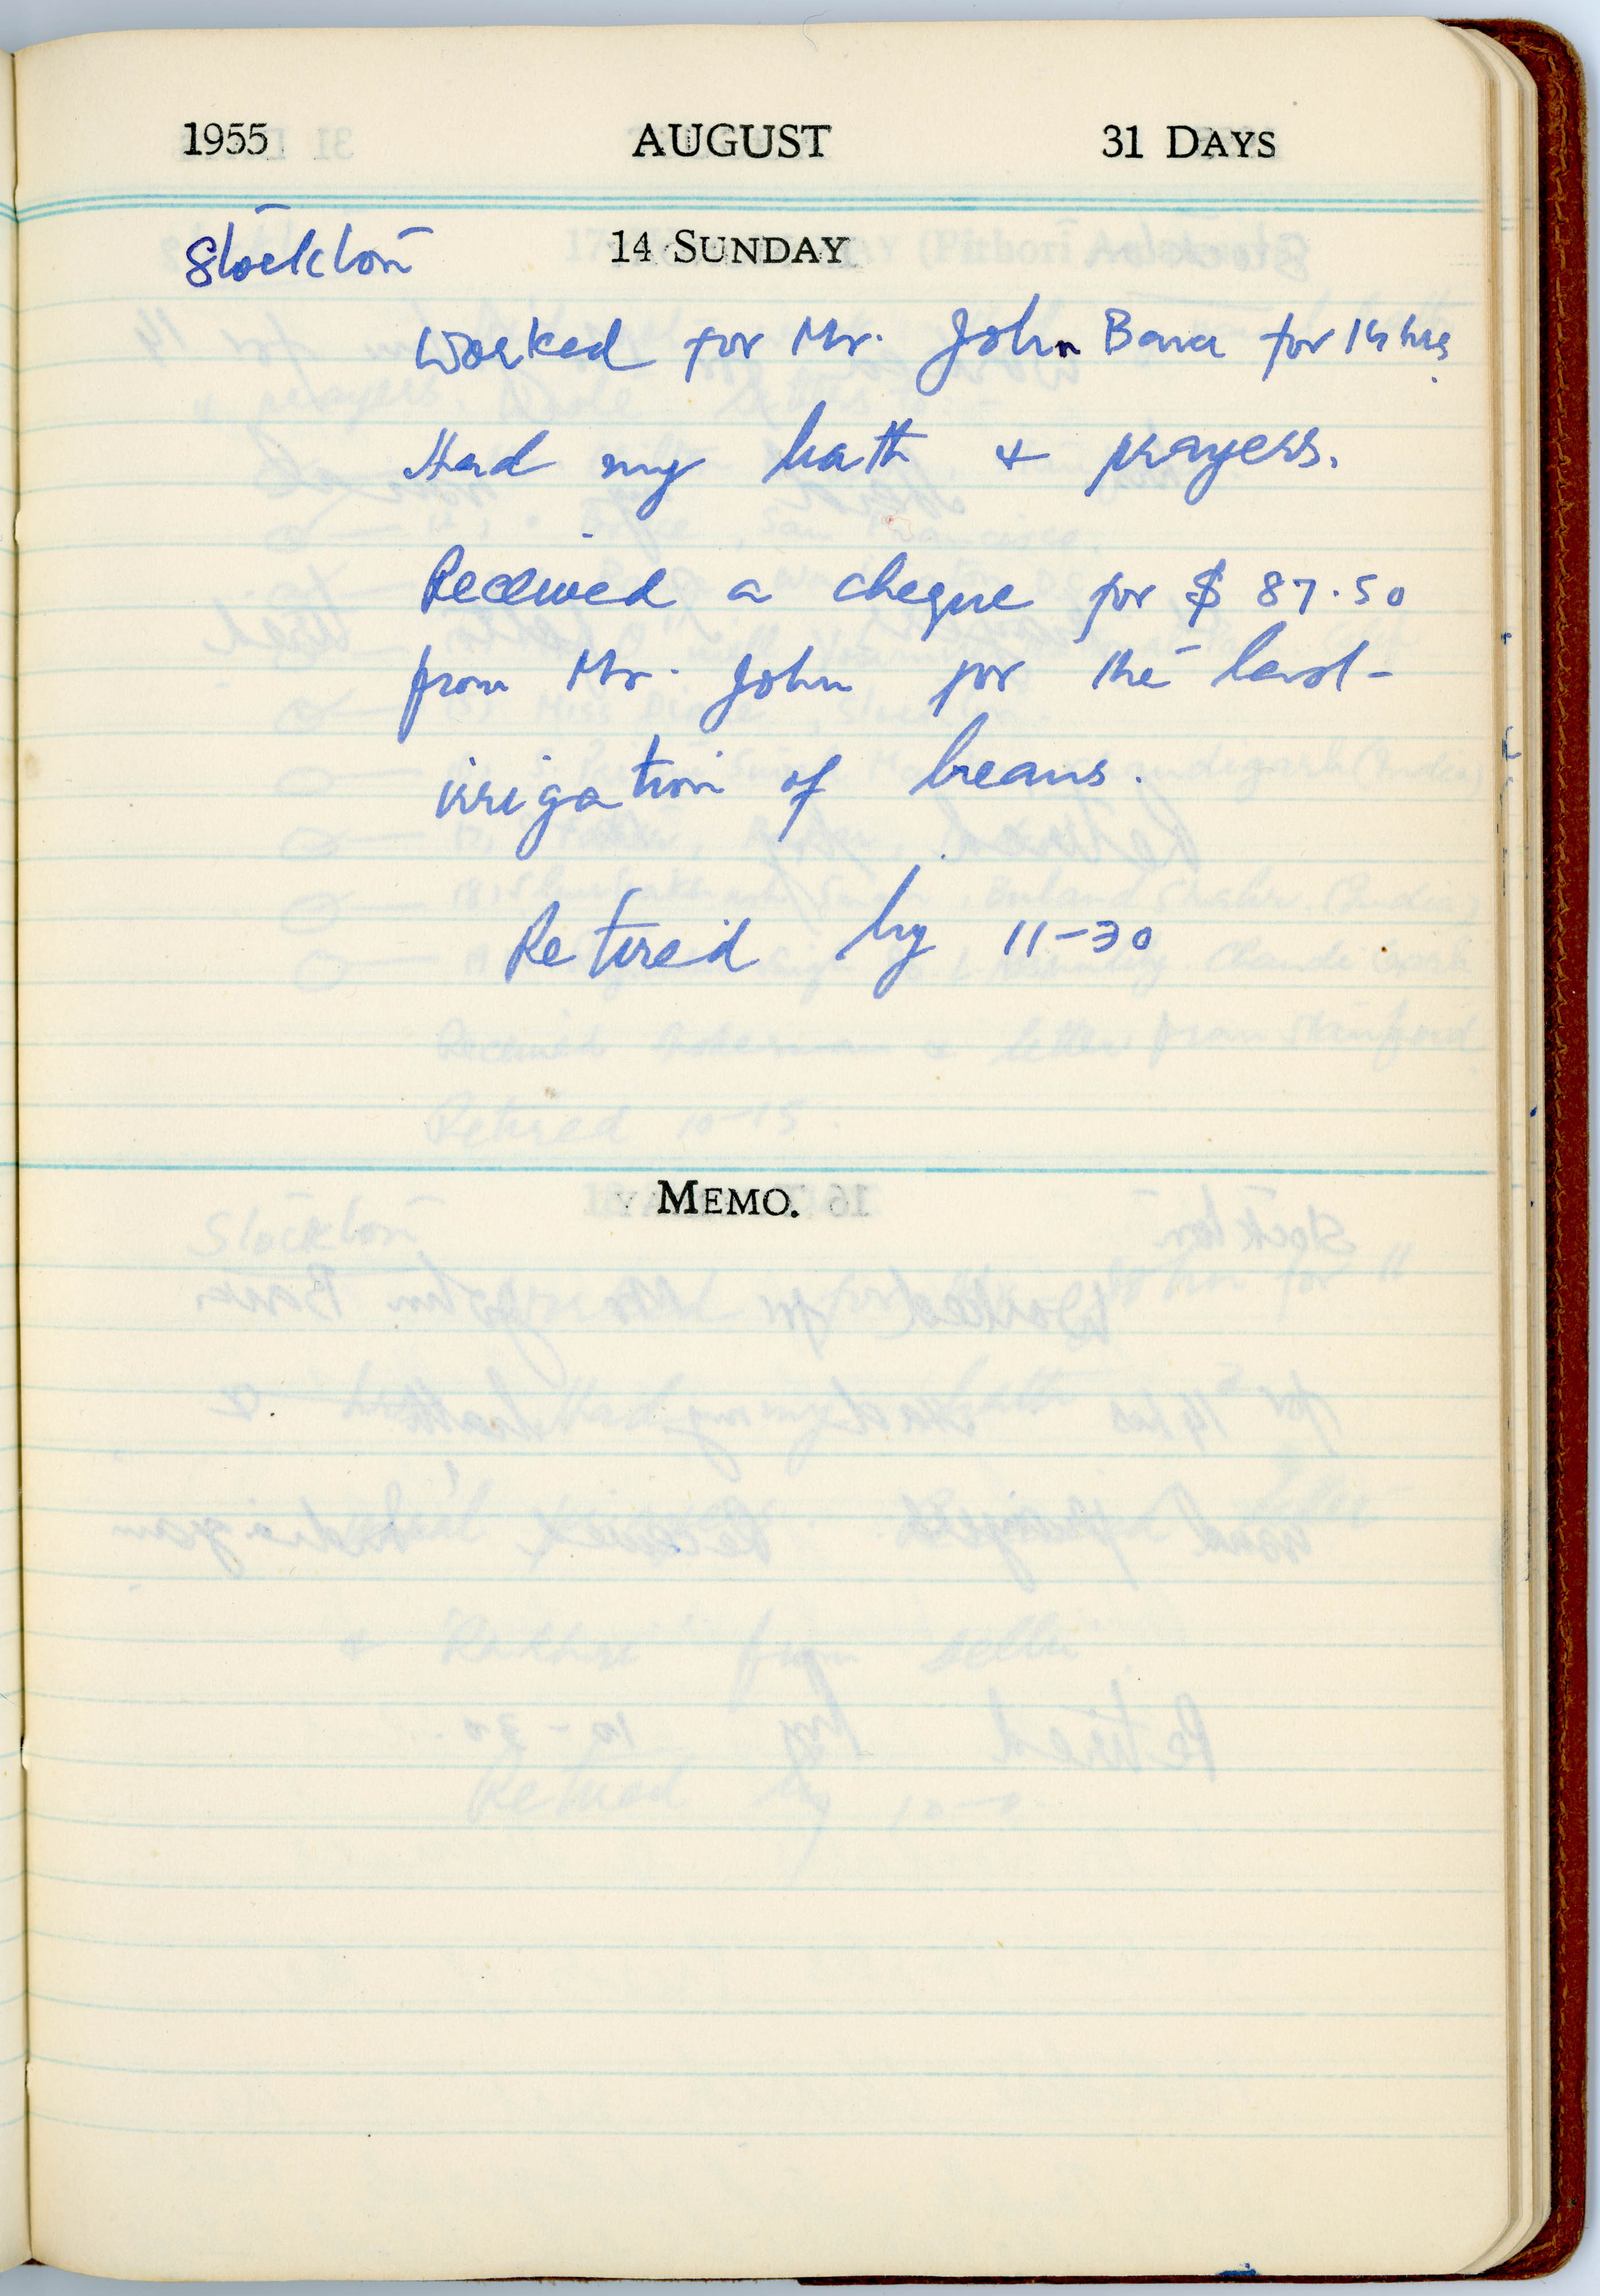 1955 AUGUST 31 DAYS
Stockton 14 SUNDAY
Worked for Mr. John Bava for 14 hrs.
Had my bath & prayers.
Received a cheque for $ 87.50
from Mr. John for the last
irrigation of beans.
Retired by 11-30
MEMO.